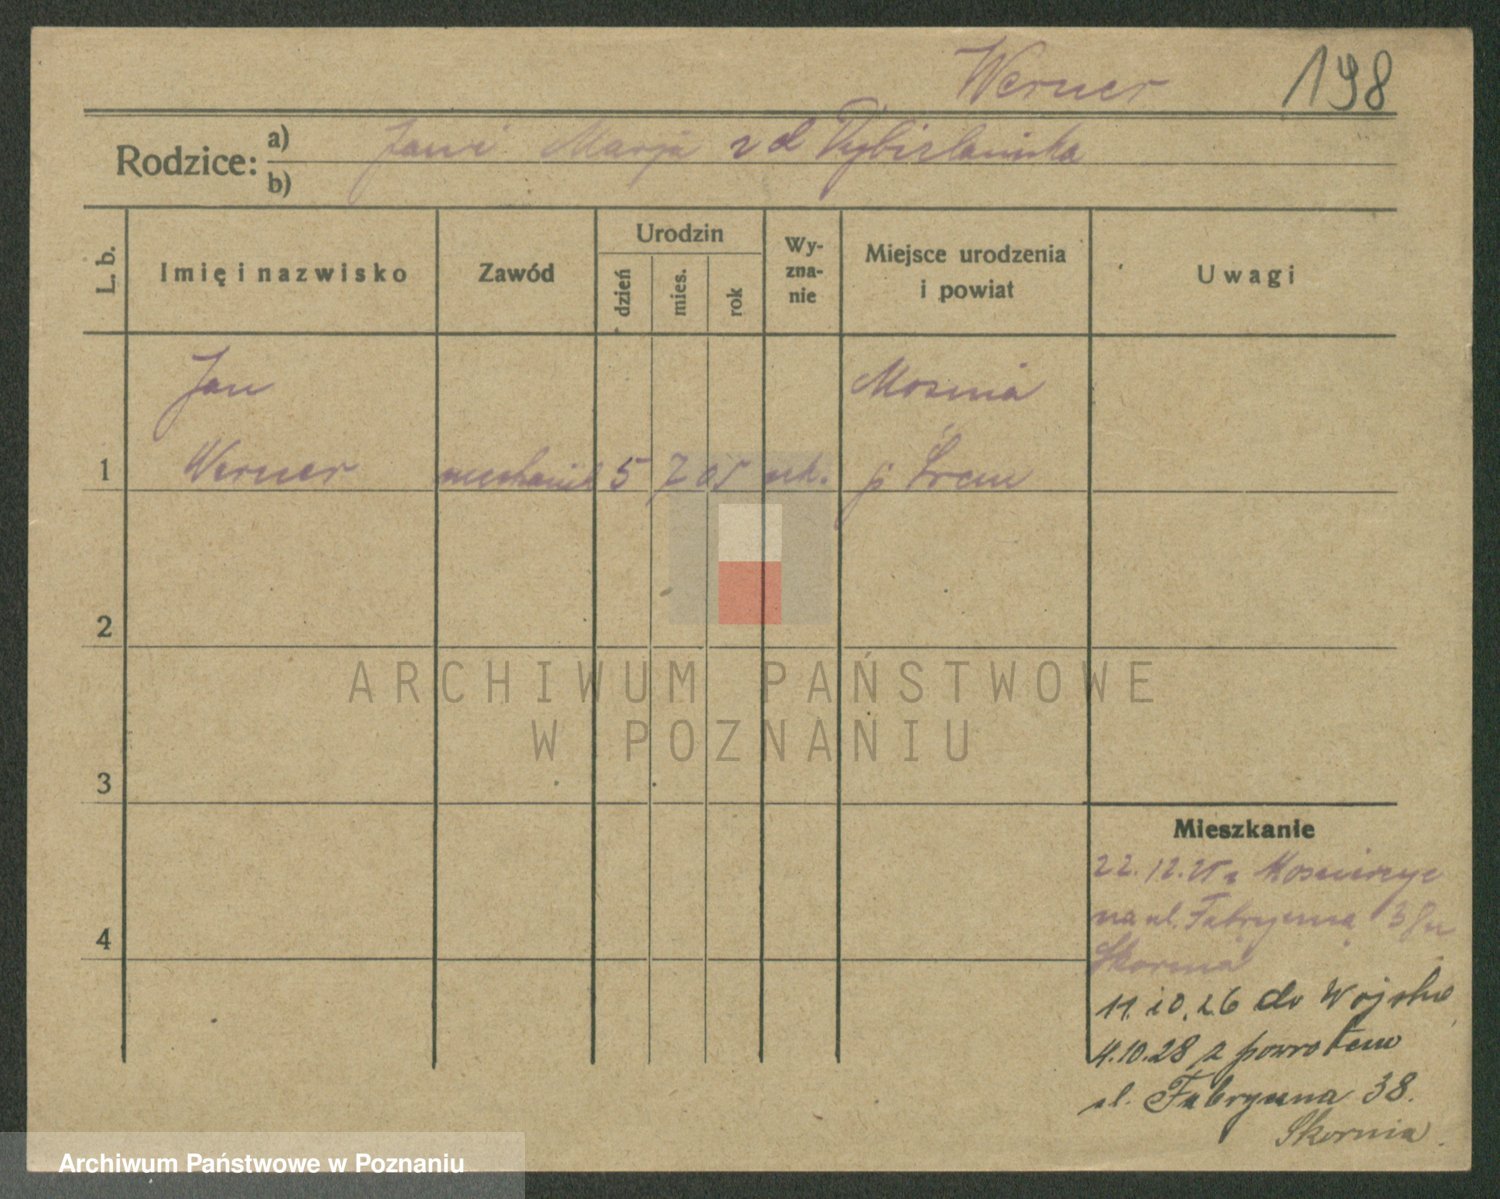 Werner
198
Rodzice: a) Jan i Marja z d
b)
L. b.
Imię i nazwisko
Zawód
Urodzin
dzień
mies.
rok
Wy-
zna-
nie
Miejsce urodzenia
i powiat
Uwagi
Jan
Mosina
1 Werner mechanik 5 7 05 rzk. p Śrem
2
3
4
Mieszkanie
22.12.25 z
na ul. Fabryczna 38 u
Skornia
11.10.26 do Wojska
4.10.28 z powrotem
ul. Fabryczna 38.
Skornia.
ARCHIWUM PAŃSTWOWE
W POZNANIU
Archiwum Państwowe w Poznaniu